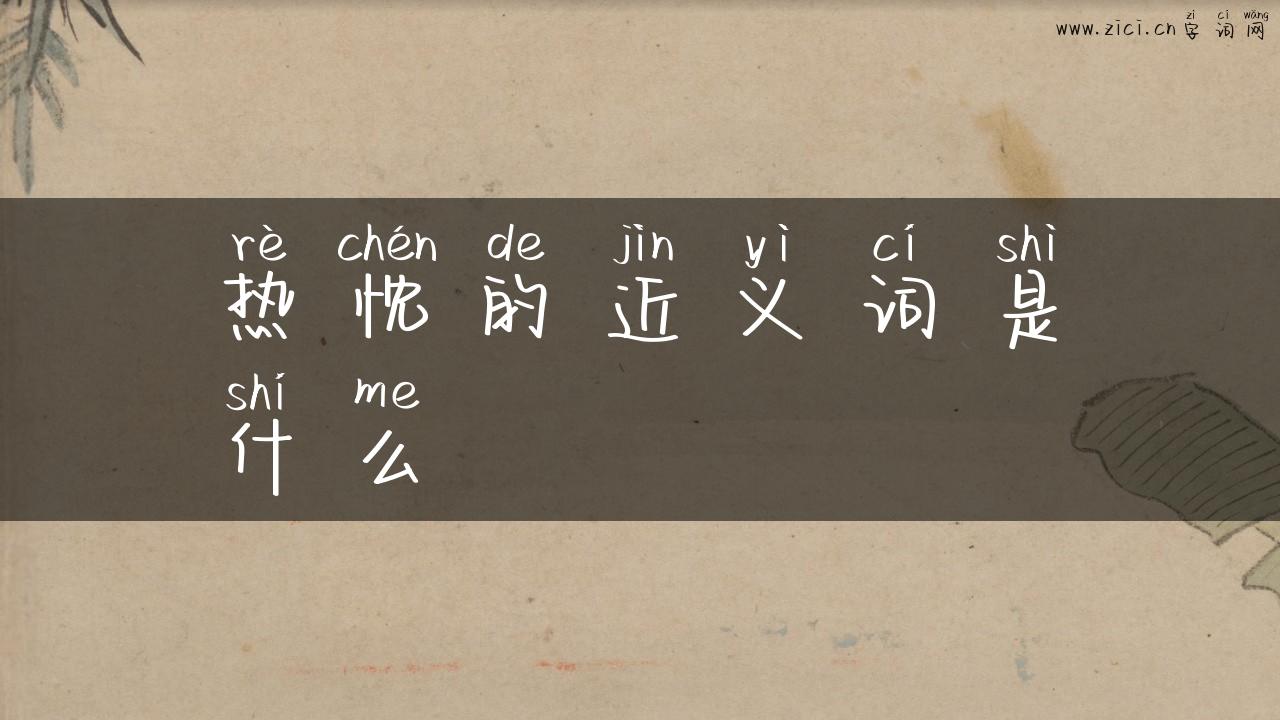 zì cí wǎng
www.zici.cn 字 词 网
rè chén de jìn yì cí shì
热 忱 的 近 义 词 是
shí me
什 么